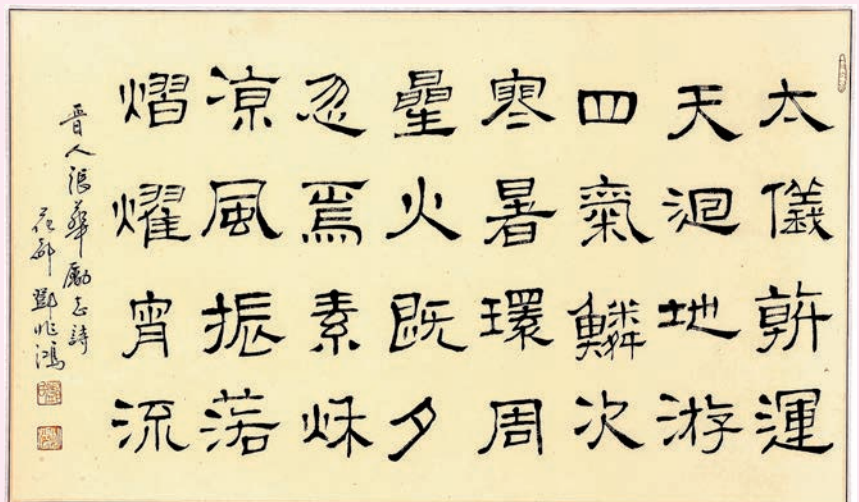 太儀斡運
天迴地游
四氣鱗次
寒暑環周
星火既夕
忽焉素秋
凉風振落
熠燿宵流
晋人張華勵志詩
花都鄧兆鴻